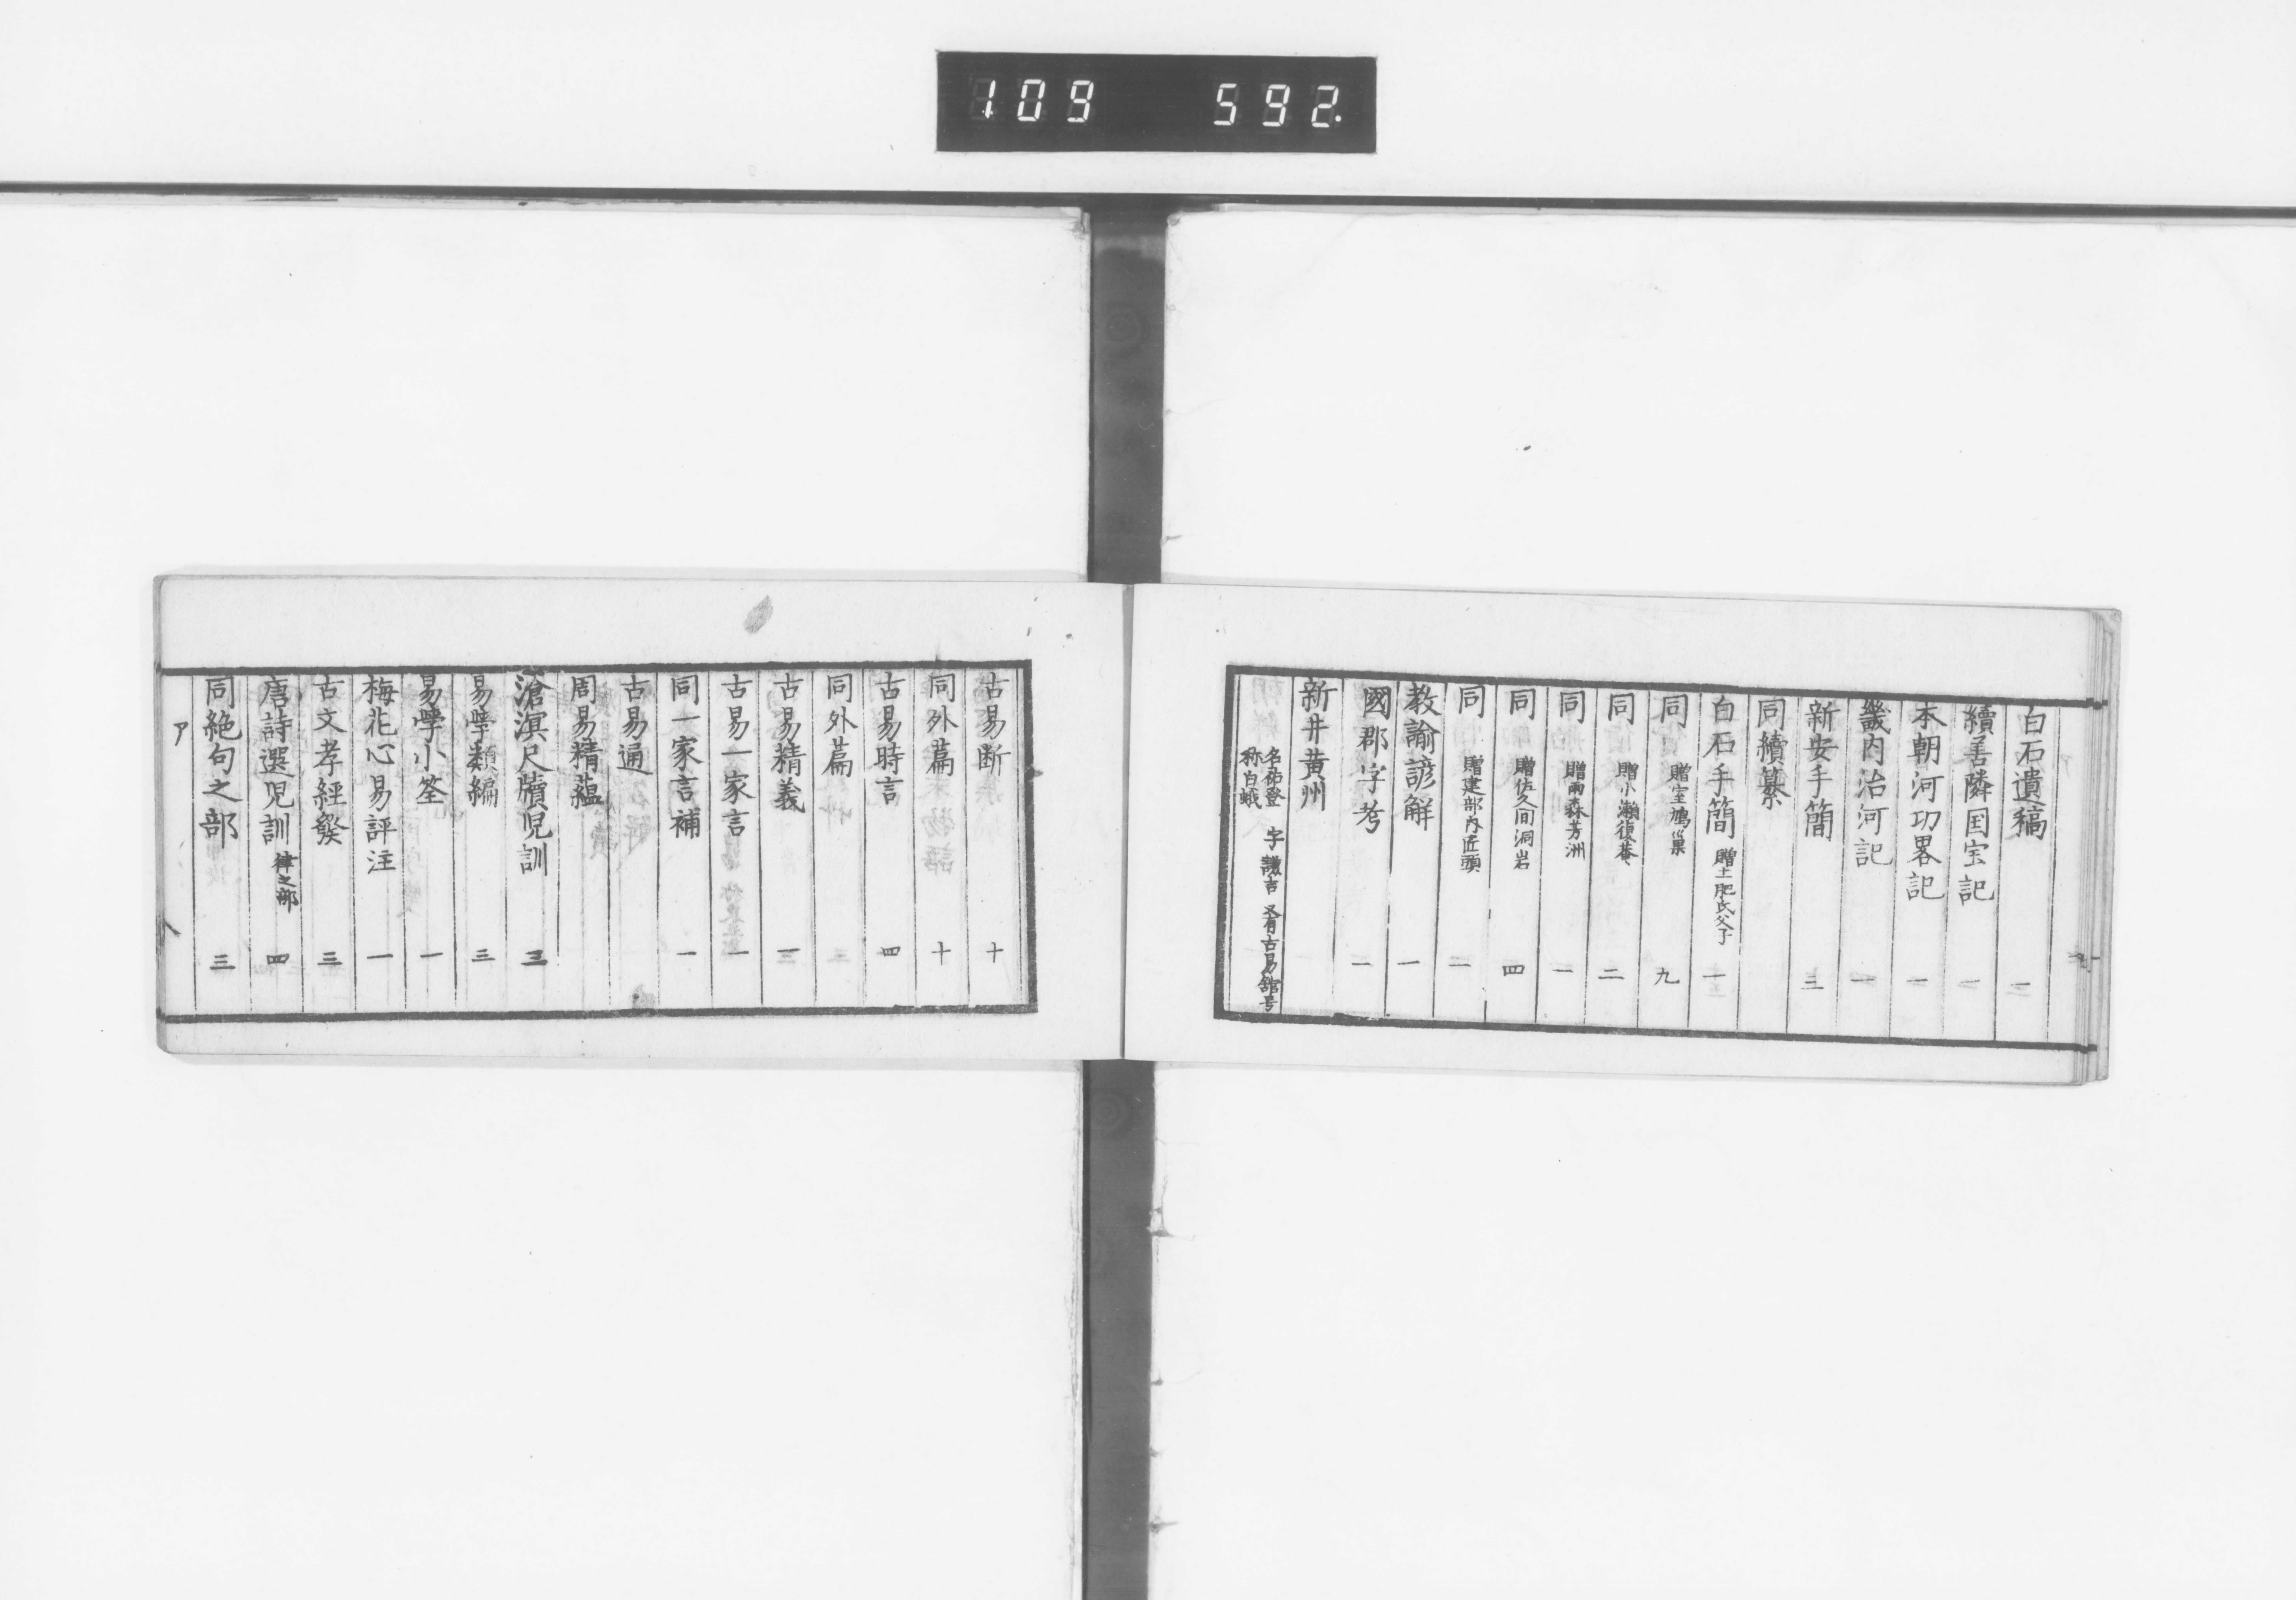 109 592.
白石遺稿 二
續善隣国宝記 一
本朝河功畧記 一
畿内治河記 一
新安手簡 三
同續纂
白石手簡 贈土肥氏父子 一
同 贈室鳩巣 九
同 贈小瀬復菴 二
同 贈雨森芳洲 一
同 贈佐久间洞岩 四
同 贈建部内匠頭 一
教諭諺解 一
國郡字考 一
新井黄州
名祐登 字謙吉 又有古易舘号
称白蛾
古易断 十
同外篇 十
古易時言 四
同外篇
古易精義 一
古易一家言 一
同一家言補 一
古易通
周易精蘊
滄溟尺牘児訓 三
易學類編 三
易學小筌 一
梅花心易評注 一
古文孝經發 三
唐詩選児訓 律之部 四
同絶句之部 三
ア